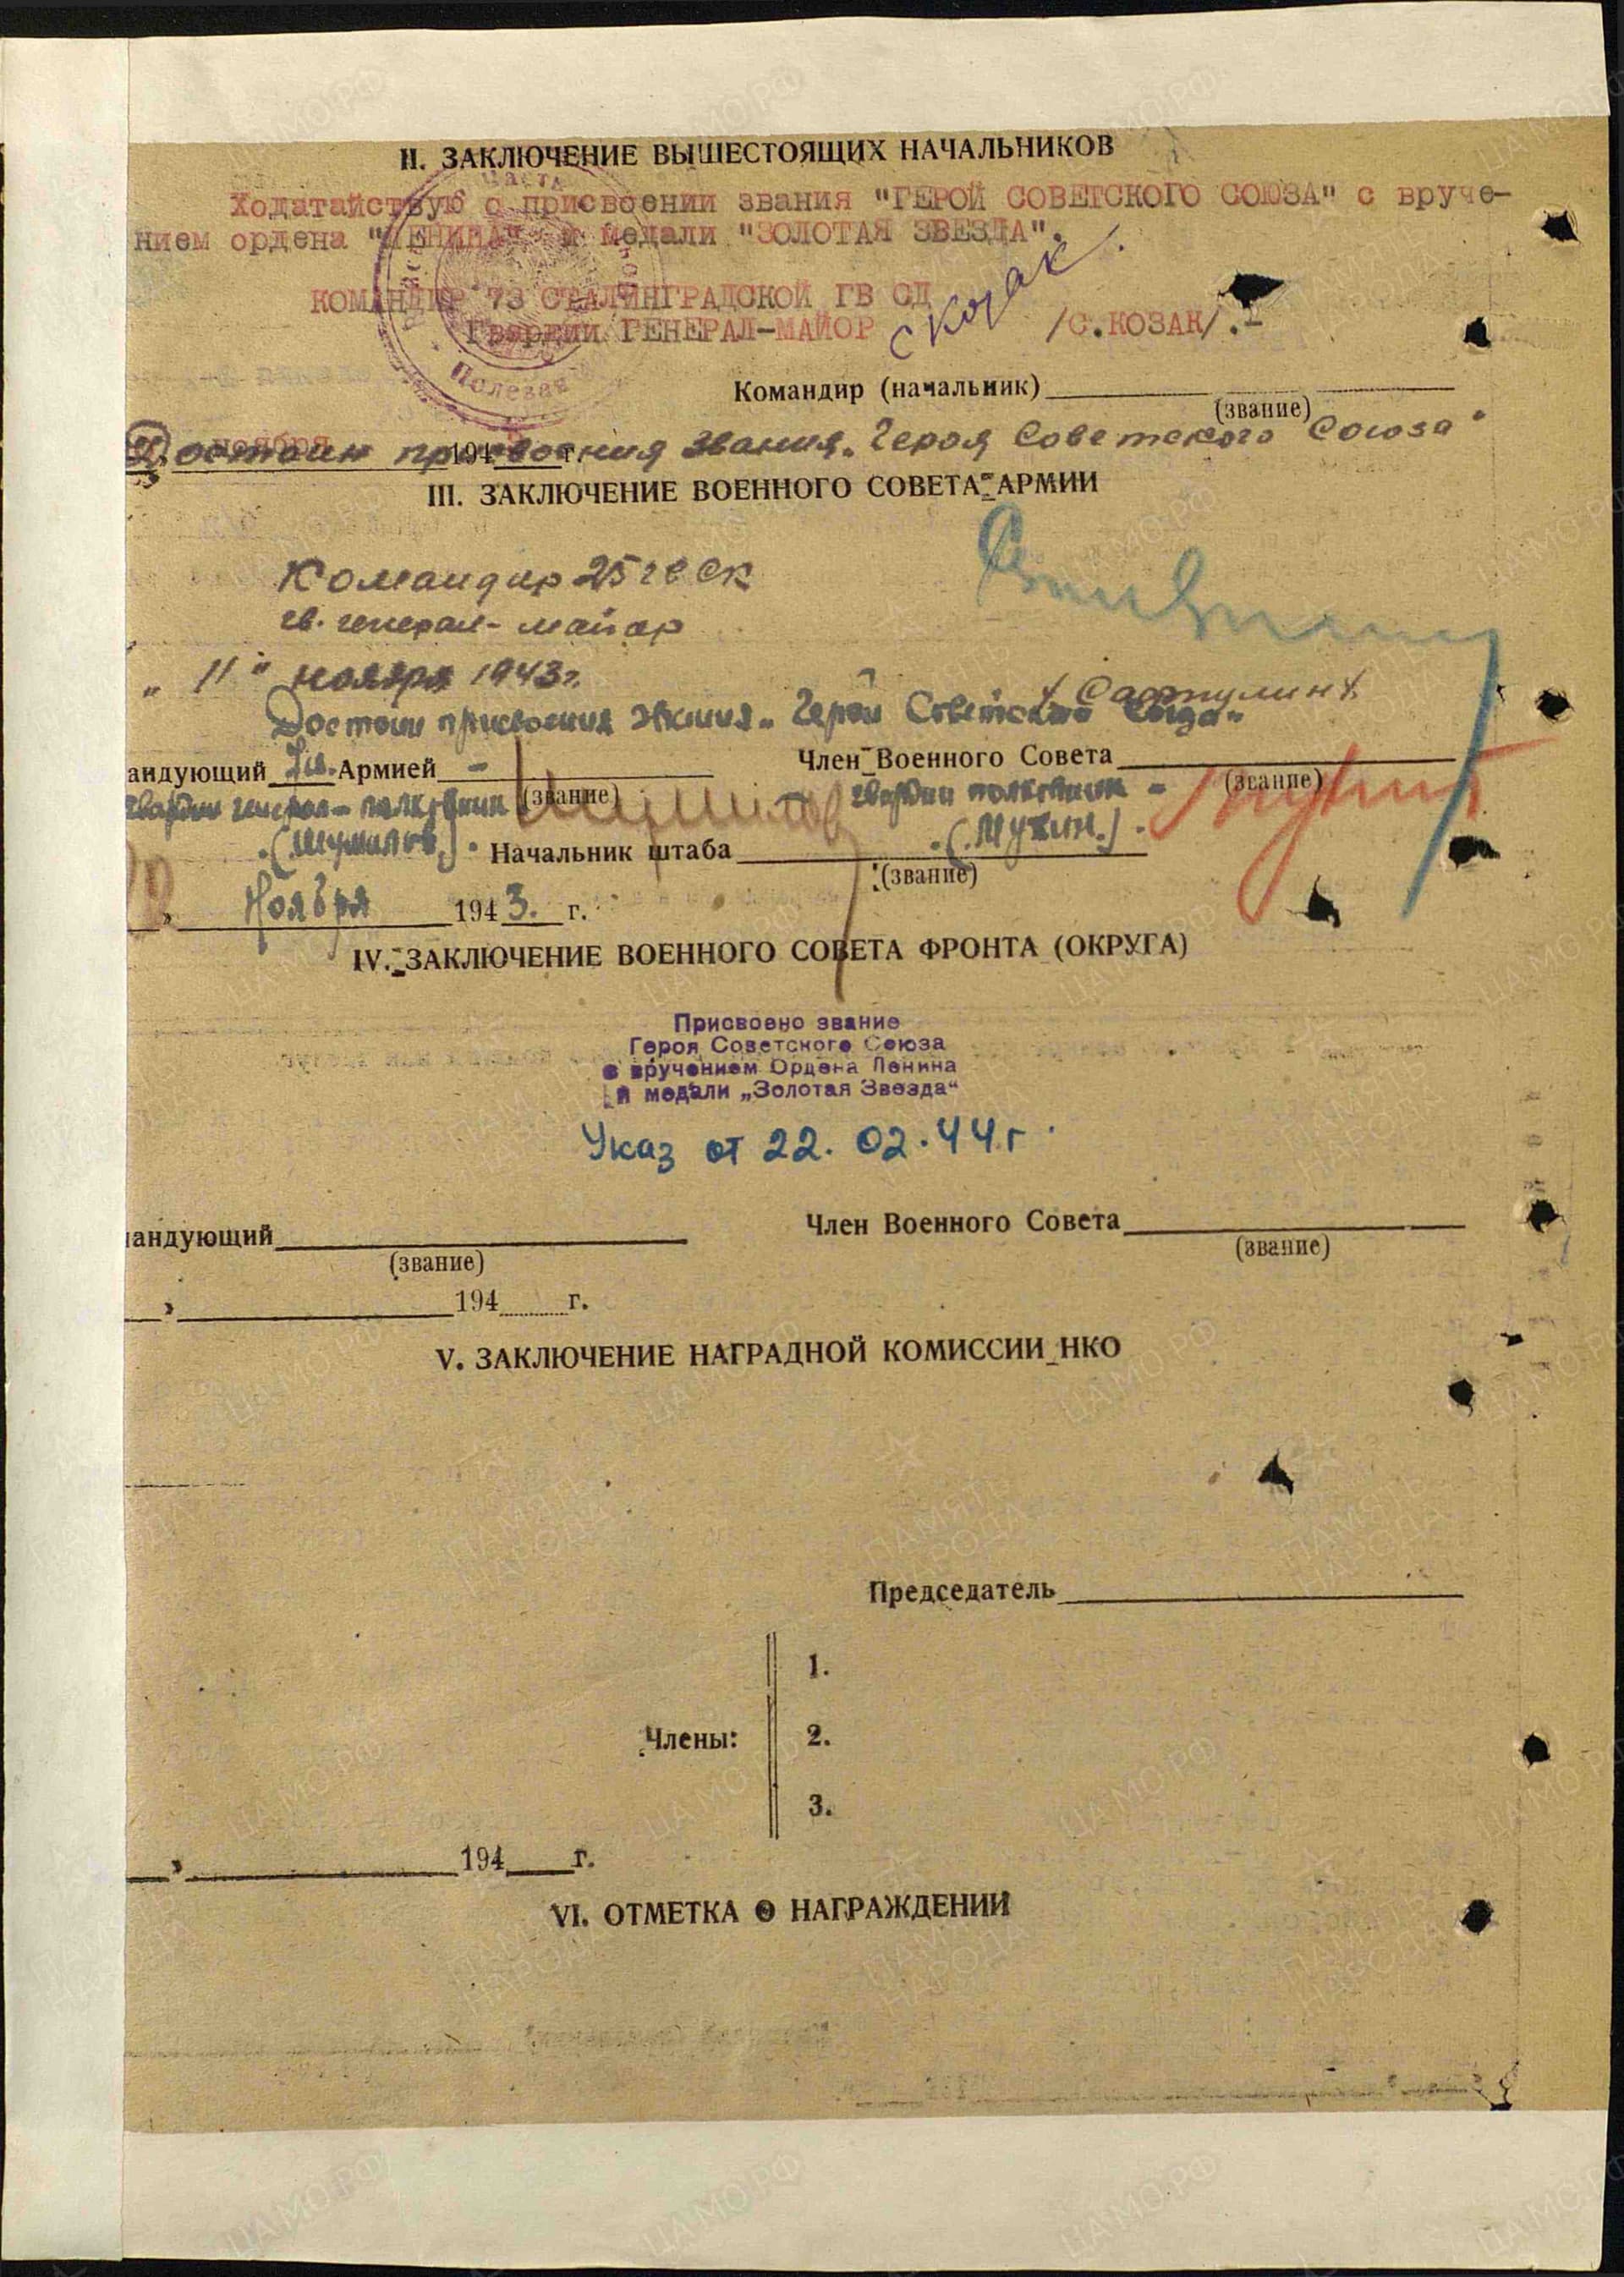 II. ЗАКЛЮЧЕНИЕ ВЫШЕСТОЯЩИХ НАЧАЛЬНИКОВ
Ходатайствую о присвоении звания "ГЕРОЙ СОВЕТСКОГО СОЮЗА" с вруче-
нием ордена "ЛЕНИНА" и медали "ЗОЛОТАЯ ЗВЕЗДА".
КОМАНДИР 73 СТАЛИНГРАДСКОЙ ГВ СД
Гвардии ГЕНЕРАЛ-МАЙОР С Козак /С.КОЗАК/.-
Полевая
Командир (начальник)
(звание)
ноября 194 г.
Достоин присвоения звания „Героя Советского Союза"
III. ЗАКЛЮЧЕНИЕ ВОЕННОГО СОВЕТА АРМИИ
Командир 25 гв ск
гв. генерал-майор
„11" ноября 1943г.
/Сафиулин/
Достоин присвоения звания „Герой Советского Союза"
андующий 7 гв. Армией Член Военного Совета
(звание) (звание)
гвардии генерал-полковник гвардии полковник
(Шумилов). (Мухин.).
Начальник штаба
(звание)
Ноября 1943. г.
IV. ЗАКЛЮЧЕНИЕ ВОЕННОГО СОВЕТА ФРОНТА (ОКРУГА)
Присвоено звание
Героя Советского Союза
с вручением Ордена Ленина
и медали „Золотая Звезда“
Указ от 22.02.44г.
андующий Член Военного Совета
(звание) (звание)
194 г.
V. ЗАКЛЮЧЕНИЕ НАГРАДНОЙ КОМИССИИ НКО
Председатель
1.
Члены: 2.
3.
194 г.
VI. ОТМЕТКА О НАГРАЖДЕНИИ
ПАМЯТЬ НАРОДА
ЦАМО.РФ